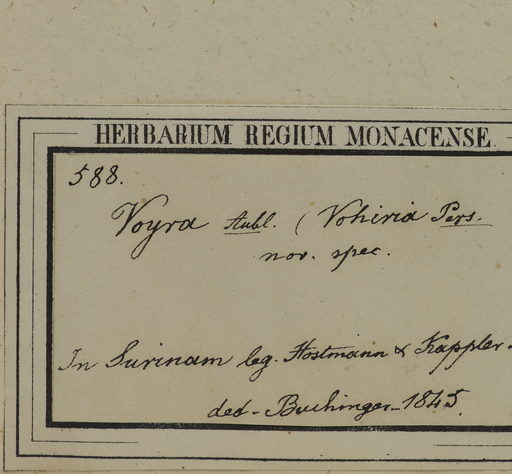 HERBARIUM REGIUM MONACENSE.
588.
Voyra Aubl. (Vohiria Pers.
nov. spec.
In Surinam leg. Hostmann & Kappler.
ded. Buchinger. 1845.